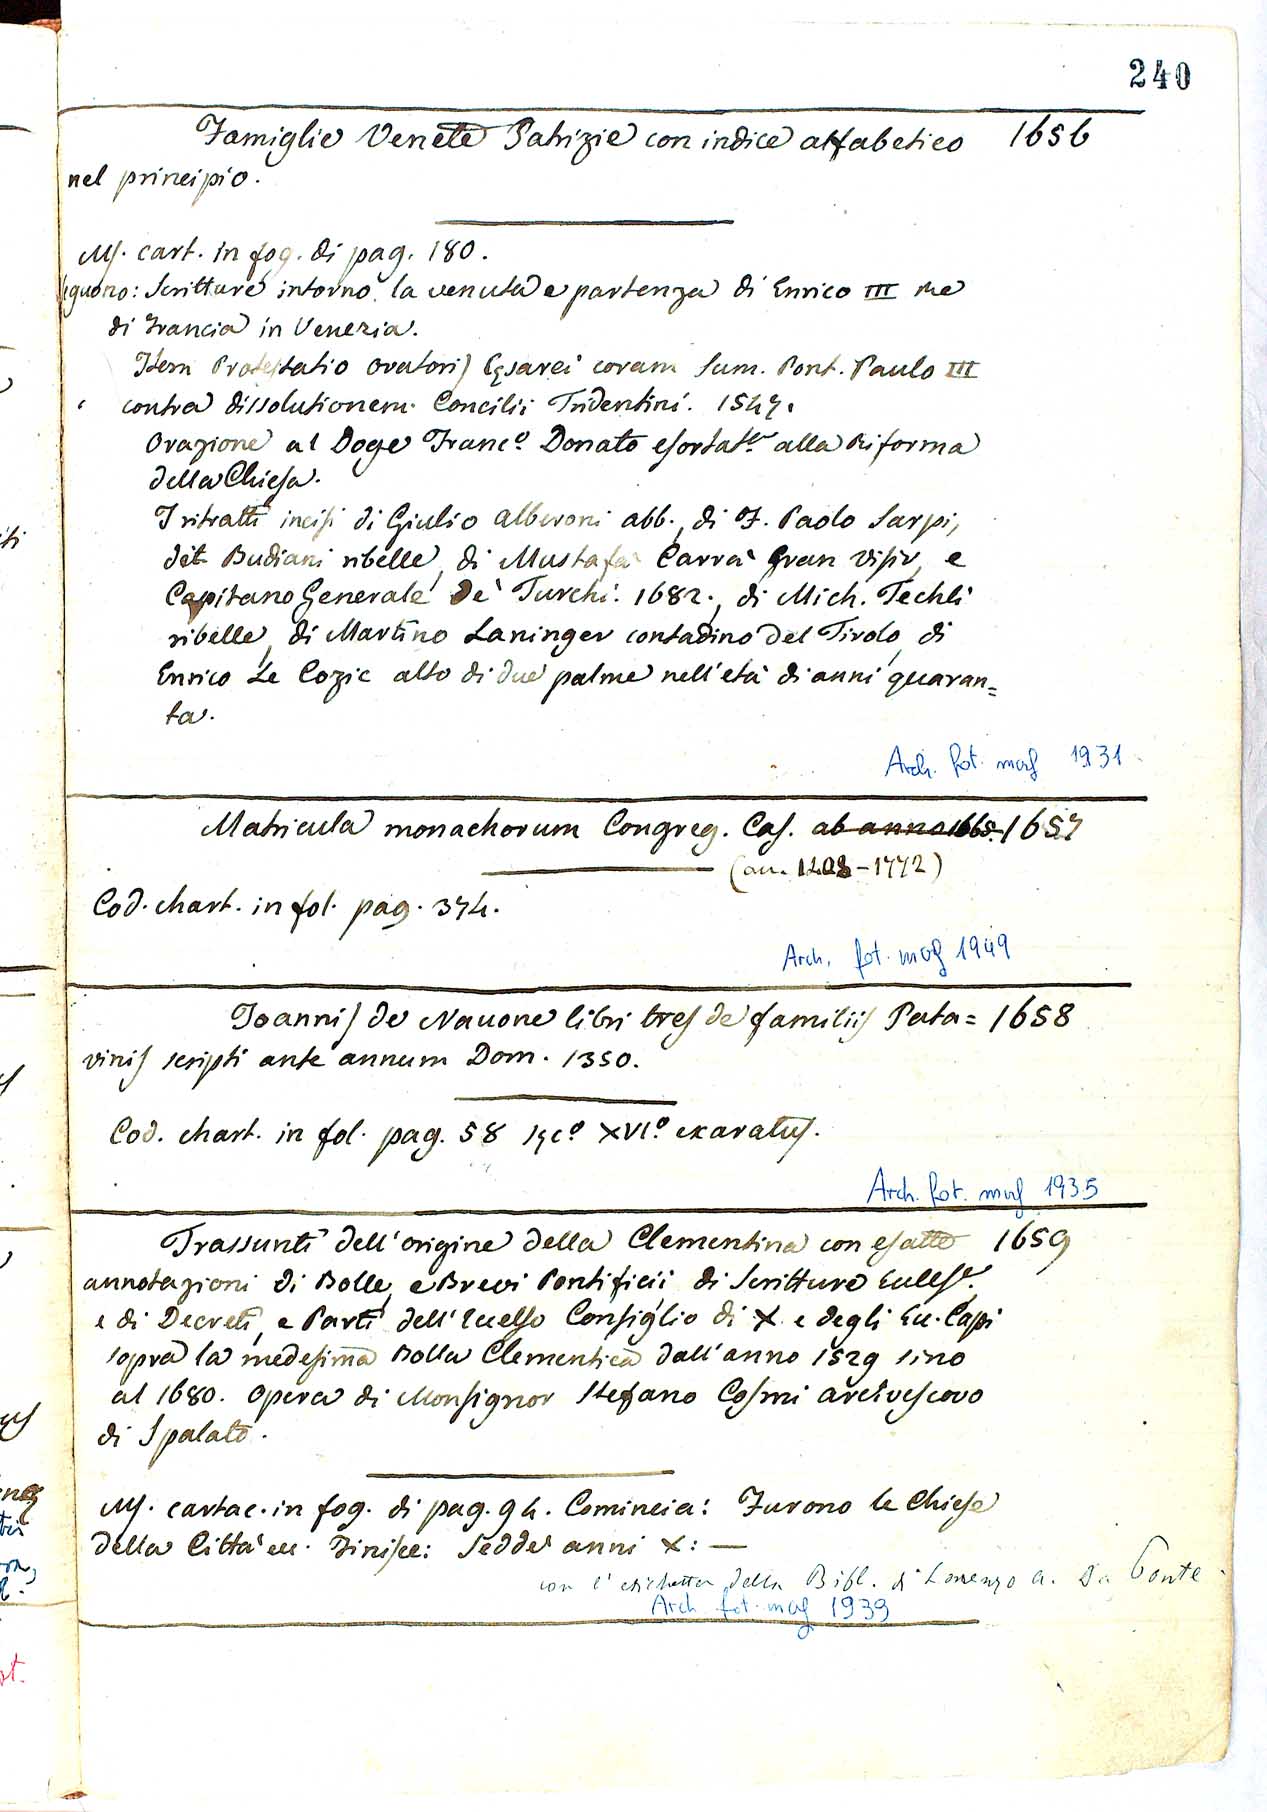 240
Famiglie Venete Patrizie con indice alfabetico 1656
nel principio.
Ms. cart. in fog. di pag. 180.
eguono: Scritture intorno la venuta e partenza di Enrico III Re
di Francia in Venezia.
Item Protestatio oratoris Cęsarei coram Sum. Pont. Paulo III
contra dissolutionem Concilii Tridentini. 1547.
Orazione al Doge Franc.º Donato esortat.e alla Riforma
della Chiesa.
I ritratti incisi di Giulio Alberoni abb., di F. Paolo Sarpi,
del Budiani ribelle, di Mustafà Carrà Gran Visir, e
Capitano Generale de' Turchi. 1682., di Mich. Techli
ribelle, di Martino Laninger contadino del Tirolo, di
Enrico Le Cozic alto di due palme nell'età di anni quaran=
ta.
Arch. fot. marf 1931
Matricula monachorum Congreg. Cas. ab anno 1665. 1657
(an. 1408-1772)
Cod. chart. in fol. pag. 374.
Arch. fot. marf 1949
Joannis de Nauone libri tres de familiis Pata= 1658
vinis scripti ante annum Dom. 1350.
Cod. chart. in fol. pag. 58 sęc.º XVI.º exaratus.
Arch. fot. marf 1935
Trassunti dell'origine della Clementina con esatte 1659
annotazioni di Bolle, e Brevi Pontificii di Scritture
e di Decreti, e Parti dell'Eccelso Consiglio di X. e degli Ecc. Capi
sopra la medesima Bolla Clementica dall'anno 1529 sino
al 1680. Opera di Monsignor Stefano Cosmi arcivescovo
di Spalato.
Ms. cartac. in fog. di pag. 94. Comincia: Furono le Chiese
della Città ecc. Finisce: Sedde anni X: —
con l'etichetta della Bibl. di Lorenzo A. Da Ponte.
Arch. fot. marf 1939